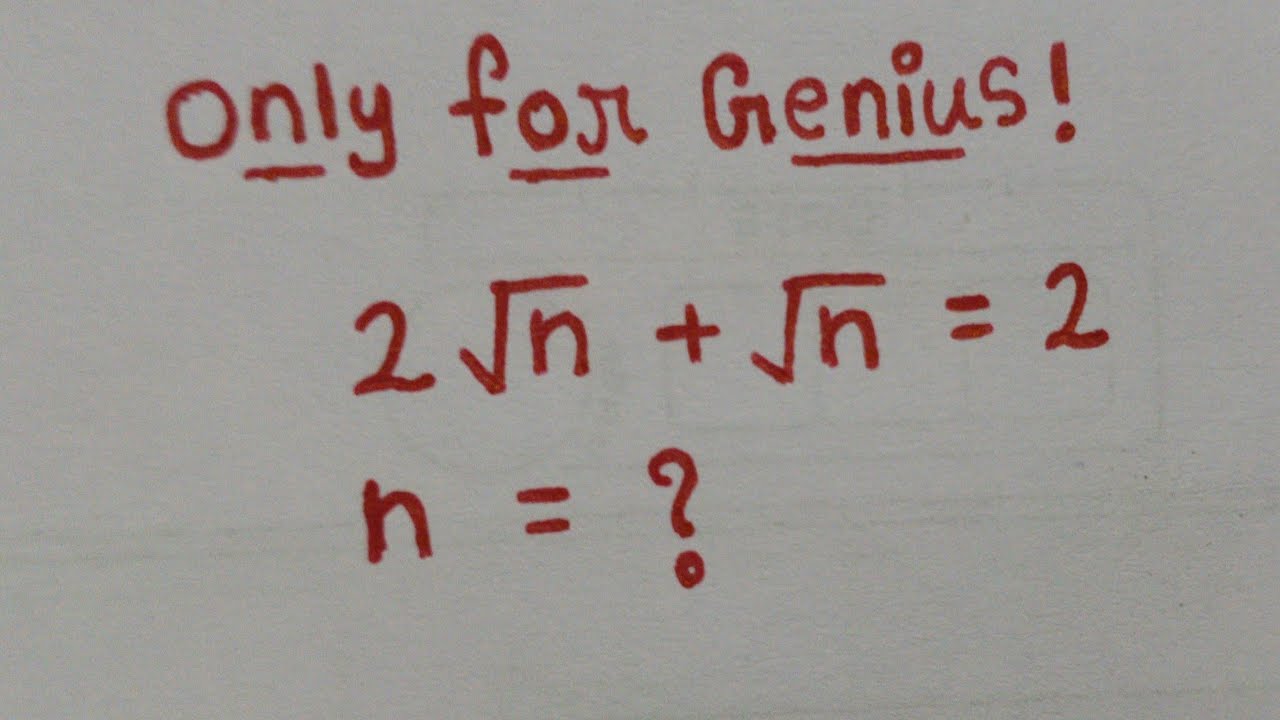 Only for Genius!
2√n + √n = 2
n = ?